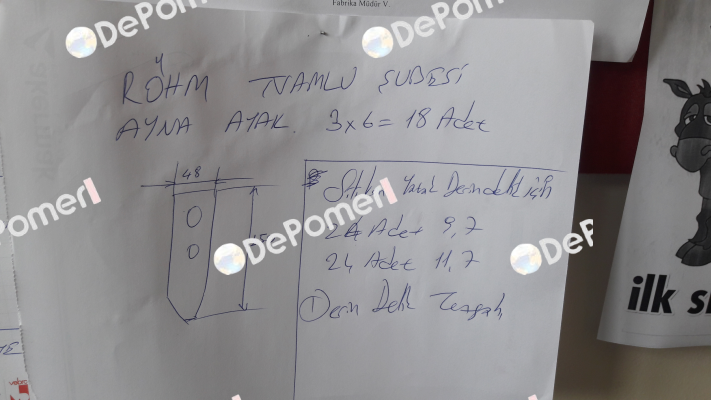 Fabrika Müdür V.
RÖHM NAMLU ŞUBESİ
AYNA AYAK. 3x6=18 Adet
48
için
24 Adet 9,7
24 Adet 11,7
① Derin Delik Tezgah
ilk
DePomeri
DePomeri
DePomeri
DePomeri